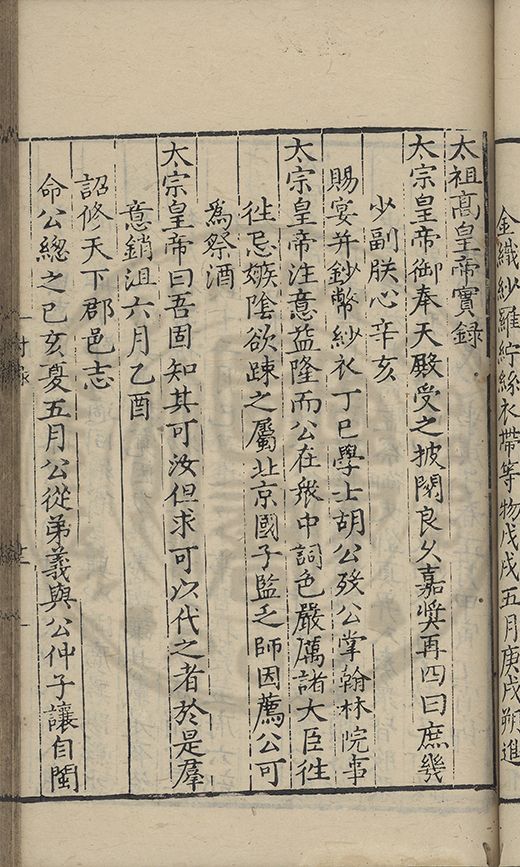 金織紗羅紵絲衣帶等物戊戌五月庚戌朔進
太祖高皇帝實錄
太宗皇帝御奉天殿受之披閱良久嘉奬再四曰庶幾
少副朕心辛亥
賜宴并鈔幣紗衣丁巳學士胡公歿公掌翰林院事
太宗皇帝注意益隆而公在衆中詞色嚴厲諸大臣徃
徃忌嫉隂欲踈之屬北京國子監乏師因薦公可
爲祭酒
太宗皇帝曰吾固知其可汝但求可以代之者於是羣
意銷沮六月乙酉
詔修天下郡邑志
命公總之己亥夏五月公從弟義與公仲子讓自閩
附錄